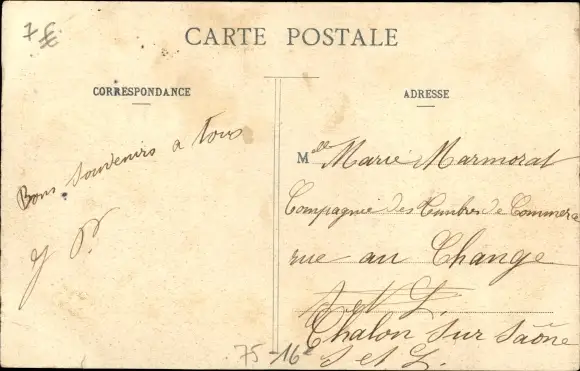 7 €
CARTE POSTALE
CORRESPONDANCE
ADRESSE
Bons souvenirs a tous
Melle Marie Marmorat
Compagnie des Timbres de Commerce
rue au Change
S et L.
Chalon sur Saône
S et L.
75-16e